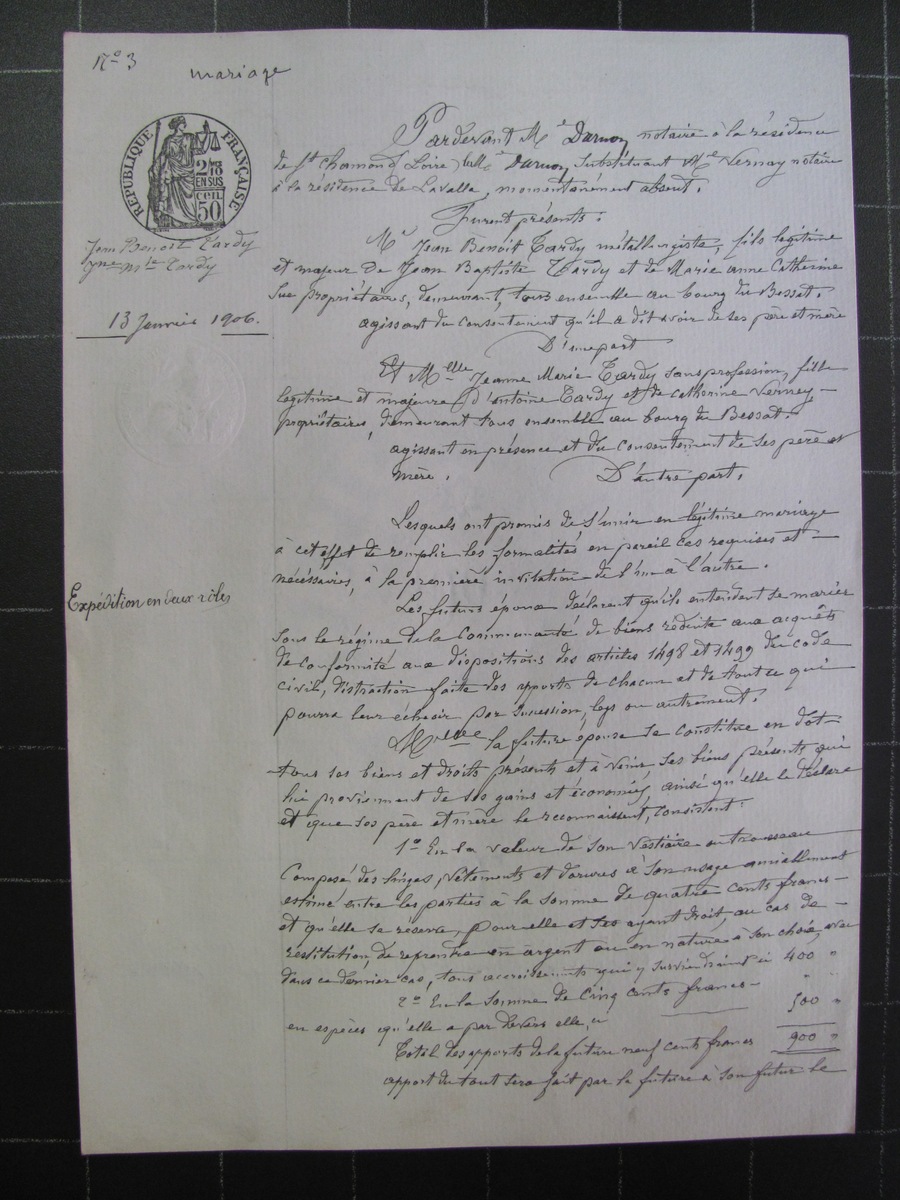 No 3
mariage
RÉPUBLIQUE FRANÇAISE
2/10
EN SUS
CEN.
50
Jean Benoit Tardy
Jne Mie Tardy
13 Janvier 1906.
Expédition en deux rôles
Pardevant Me Darnon notaire à la résidence
de St Chamond (Loire) led. Me Darnon, substituant Me Vernay notaire
à la résidence de Lavalla, momentanément absent.
Furent présents:
Mr Jean Benoit Tardy métallurgiste, fils légitime
et majeur de Jean Baptiste Tardy et de Marie anne Catherine
Sue propriétaires, demeurant, tous ensemble au bourg du Bessat.
agissant du consentement qu'il a dit avoir de ses père et mère
D'une part
Et Melle Jeanne Marie Tardy sans profession, fille
légitime et majeure d'antoine Tardy et de Catherine Verney
propriétaires, demeurant tous ensemble au bourg du Bessat.
agissant en présence et du consentement de ses père et
mère. D'autre part.
Lesquels ont promis de s'unir en légitime mariage
à cet effet de remplir les formalités en pareil cas requises et
nécessaires, à la première invitation de l'un à l'autre.
Les futurs époux déclarent qu'ils entendent se marier
sous le régime de la Communauté de biens réduite aux acquêts
de conformité aux dispositions des articles 1498 et 1499 du code
civil, distraction faite des apports de chacun et de tout ce qui
pourra leur échoir par succession, legs ou autrement.
Melle la future épouse se constitue en dot
tous ses biens et droits présents et à venir ses biens présents qui
lui proviennent de ses gains et économies, ainsi qu'elle le déclare
et que ses père et mère le reconnaissent, consistent:
1o En la valeur de son vestiaire ou trousseau
Composé des linges, vêtements et dorures à son usage amiablement
estimé entre les parties à la somme de quatre cents francs
et qu'elle se réserve, pour elle et ses ayant droit, au cas de
restitution, de reprendre en argent ou en nature à son choix, avec
dans ce dernier cas, tous accroissements qui y surviendraient ci 400 "
2o En la somme de Cinq cents francs
en espèces qu'elle a par devers elle, ci 500 "
Total des apports de la future neuf cents francs 900 "
apport du tout sera fait par la future à son futur le